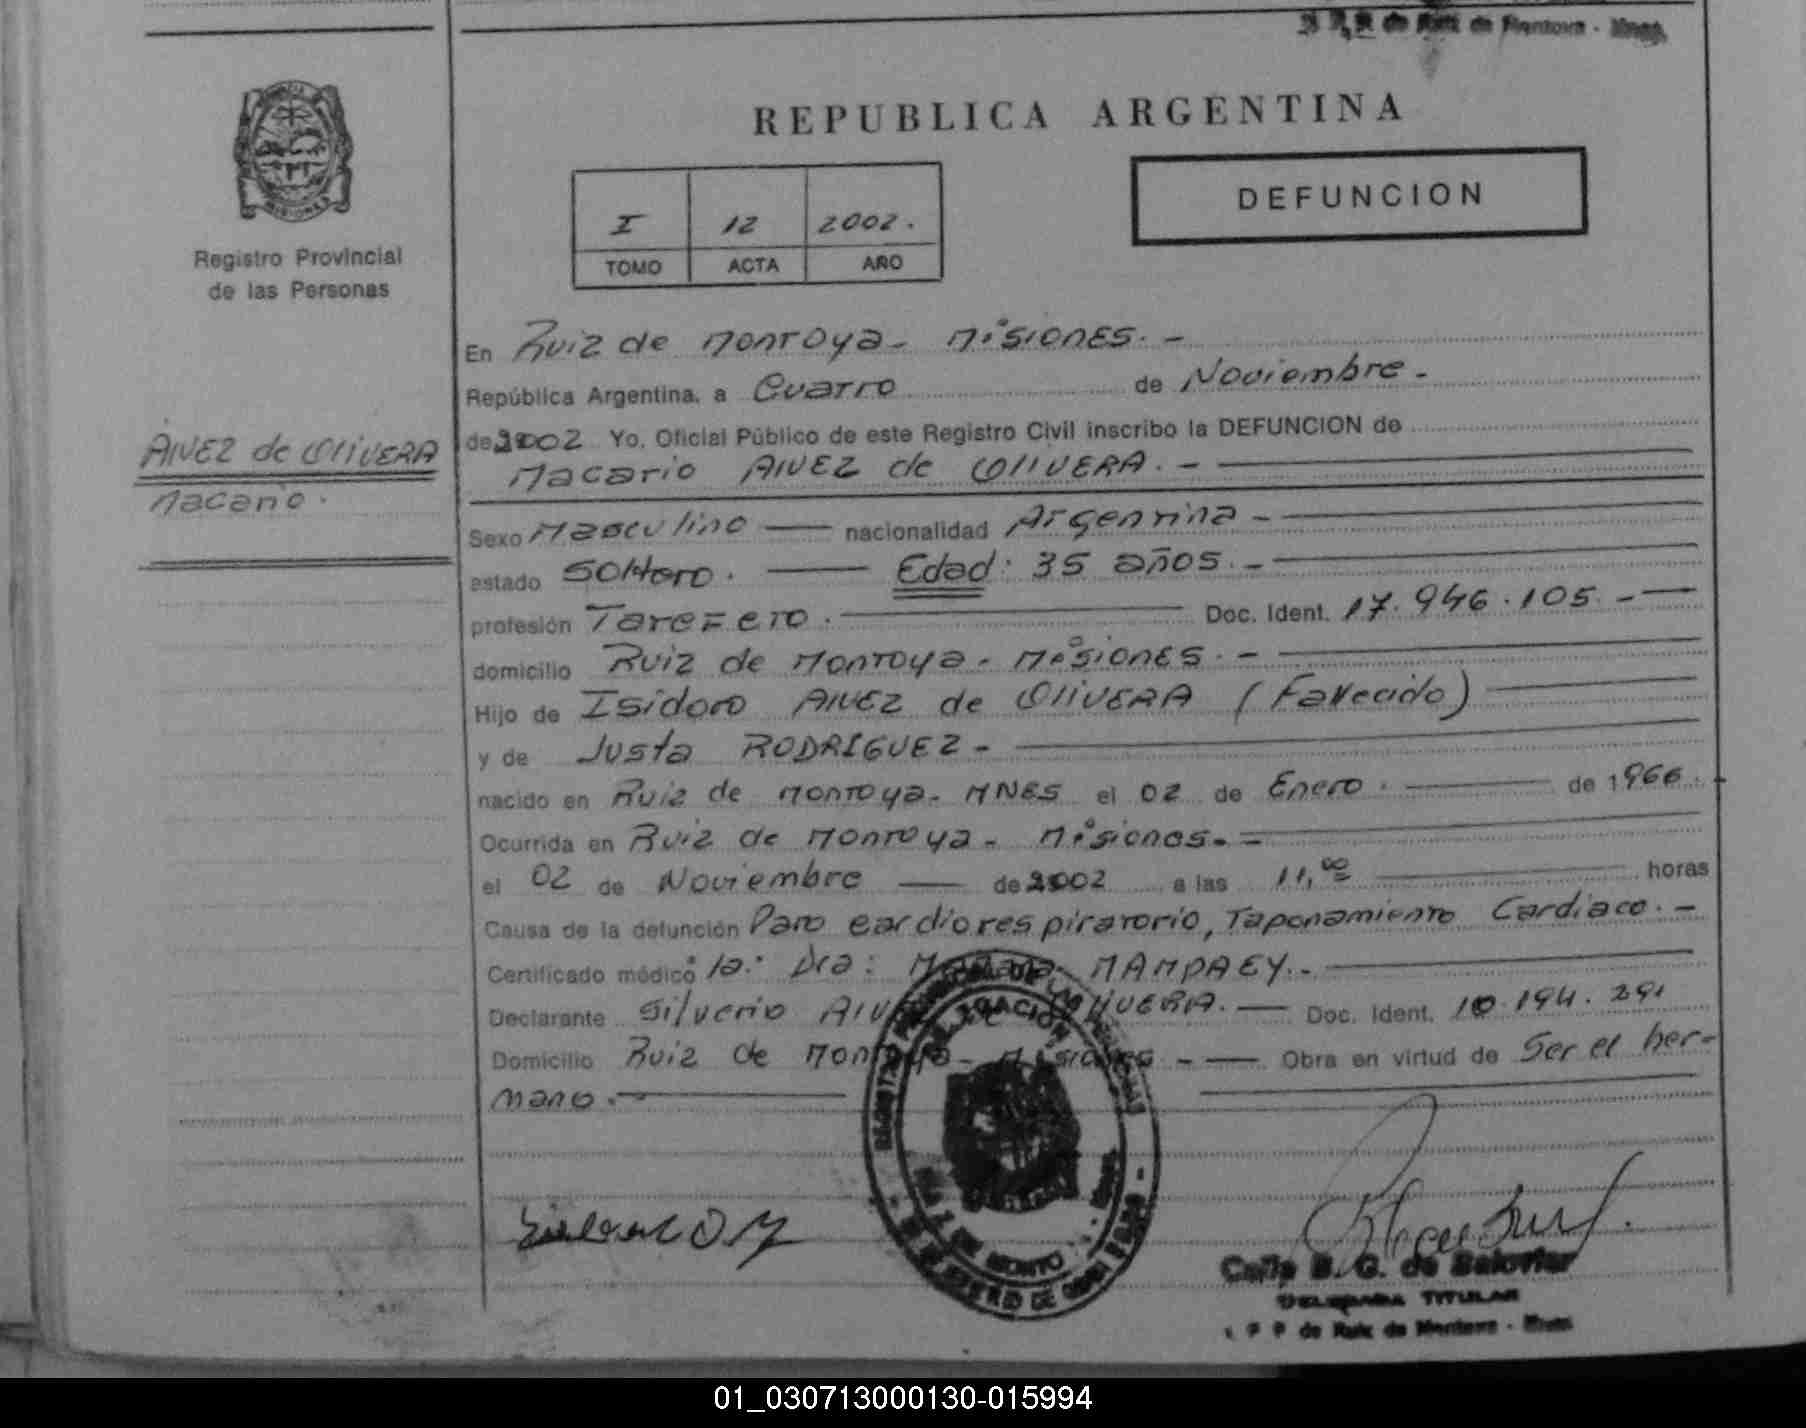 de Ruiz de Montoya - Mnes.
REPUBLICA ARGENTINA
DEFUNCION
I 12 2002.
TOMO ACTA AÑO
MISIONES
Registro Provincial
de las Personas
En Ruiz de Montoya - Misiones. -
República Argentina, a Cuatro de Noviembre -
de 2002 Yo, Oficial Público de este Registro Civil inscribo la DEFUNCION de
Macario Alvez de OliVERA. -
Alvez de OliVERA
Macario.
Sexo Masculino nacionalidad Argentina -
estado Soltero. Edad: 35 años. -
profesión Tarefero. Doc. Ident. 17.946.105. -
domicilio Ruiz de Montoya - Misiones. -
Hijo de Isidoro Alvez de OliVERA (Fallecido)
y de Justa RODRIGUEZ -
nacido en Ruiz de Montoya - MNES el 02 de Enero. de 1966.
Ocurrida en Ruiz de Montoya - Misiones. -
el 02 de Noviembre de 2002 a las 11,00 horas
Causa de la defunción Paro cardiorespiratorio, Taponamiento Cardiaco. -
Certificado médico la: Dra: MAMPAEY. -
Declarante Silverio Alvez de OliVERA. - Doc. Ident. 10.194.291
Domicilio Ruiz de Montoya - Misiones - Obra en virtud de Ser el her-
mano. -
DELEGACION
B. G. de
DELEGADA TITULAR
de Ruiz de Montoya - Mnes.
01_030713000130-015994